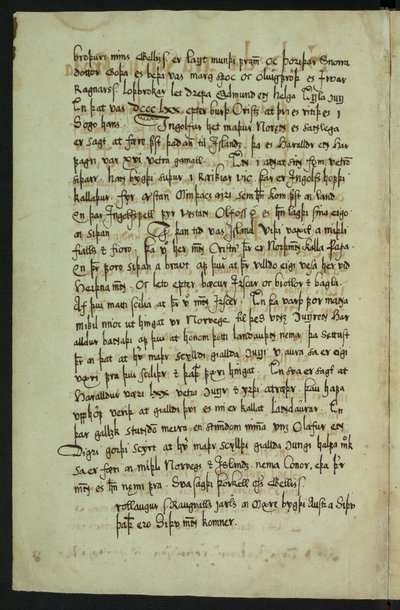 broþurs mins Gellis er langt munþi fram. oc þoriþar Snorra
dottor Goþa es beþi vas marg spoc oc oliugfroþ es Ivar
Ragnarss loþbrokar let drepa Edmund en helga Engla kgg
En þat vas dccc lxx epter burþ Cristz at þvi es ritiþ es i
Sogo hans. Ingolfur het maþur Norens es sanlega
er sagt at færi fyst þaþan til Islandz þa es Haralldur en har
fagri var xvi vetra gamall. En i annat sinn fam vetrom
siþarr. han bygþi suþur i Raikiar vic. þar er Ingolfs hofþi
kallaþur. fyr austan Minþacs airi sem hann kom fyst a land
en þar Ingolfsfell fyr vestan Olfoss a es hann lagþi sina eigo
an siþan. I þan tid vas Island viþi vaxit a miþli
fialls & fioro. þa varo her menn Cristnir þeir er Norþmenn kalla Papa
en þeir foro siþan a bravt. af þvi at þeir villdo eigi vesa her vid
Heiþna menn. oc leto epter bøcur Irscar oc biollor & bagla.
Af þvi matti scilia at þeir voro menn Irscer. En þa varþ for mana
mikil mioc ut hingat ur Norvege til þes unz kungren Har
alldur bannaþi af þvi at honom þotti landauþn nema. þa sættust
þeir a þat at hver maþr scylldi gialda kungi v. aura sa er eigi
væri fra þvi sciliþr & þaþan færi hingat. En sva er sagt at
Haralldur væri lxx vetra kungr & yrþi atræþr. þau hafa
upphof veriþ at gialldi þvi es nu er kallat landaurar. En
þar gallzk stundom meira en stundom minna unz Olafur en
Digri gorþi scyrt at hver maþr scylldi giallda kungi halfa mork
sa er færi an miþli Norvegs & Islandz nema Conor, eþa þeir
menn es hann næmi fra. Sva sagþi þorkell oss Gellisson.
rollaugur s Raugnvallz jarls an Mære bygþi Austur a Siþu
þaþan ero Siþu menn komner.